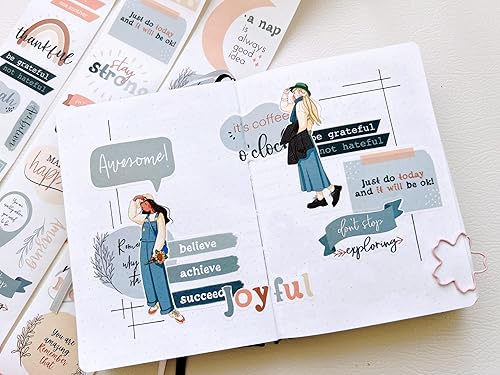 thankful
be grateful
not hateful
just do today
and it will be ok!
stay
strong
a nap
is
always
good
idea
Amazing
You are
amazing.
Remember
that
Awesome!
believe
achieve
succeed
joyful
it's coffee
o'clock
be grateful
not hateful
just do today
and it will be ok!
don't stop
exploring